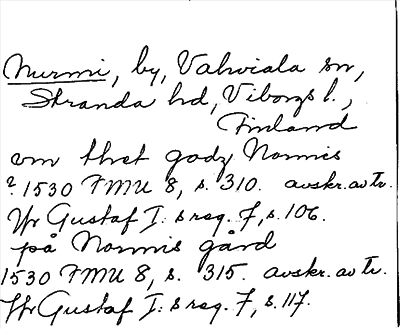 Nurmi, by, Vahviala sn,
Stranda hd, Viborgs l.,
Finland
vm thet godz Normis
? 1530 FMU 8, s. 310. avskr. av tr.
Hr Gustaf I: s reg. 7, s. 106.
på Normis gård
1530 FMU 8, s. 315. avskr. av tr.
Hr Gustaf I: s reg. 7, s. 117.